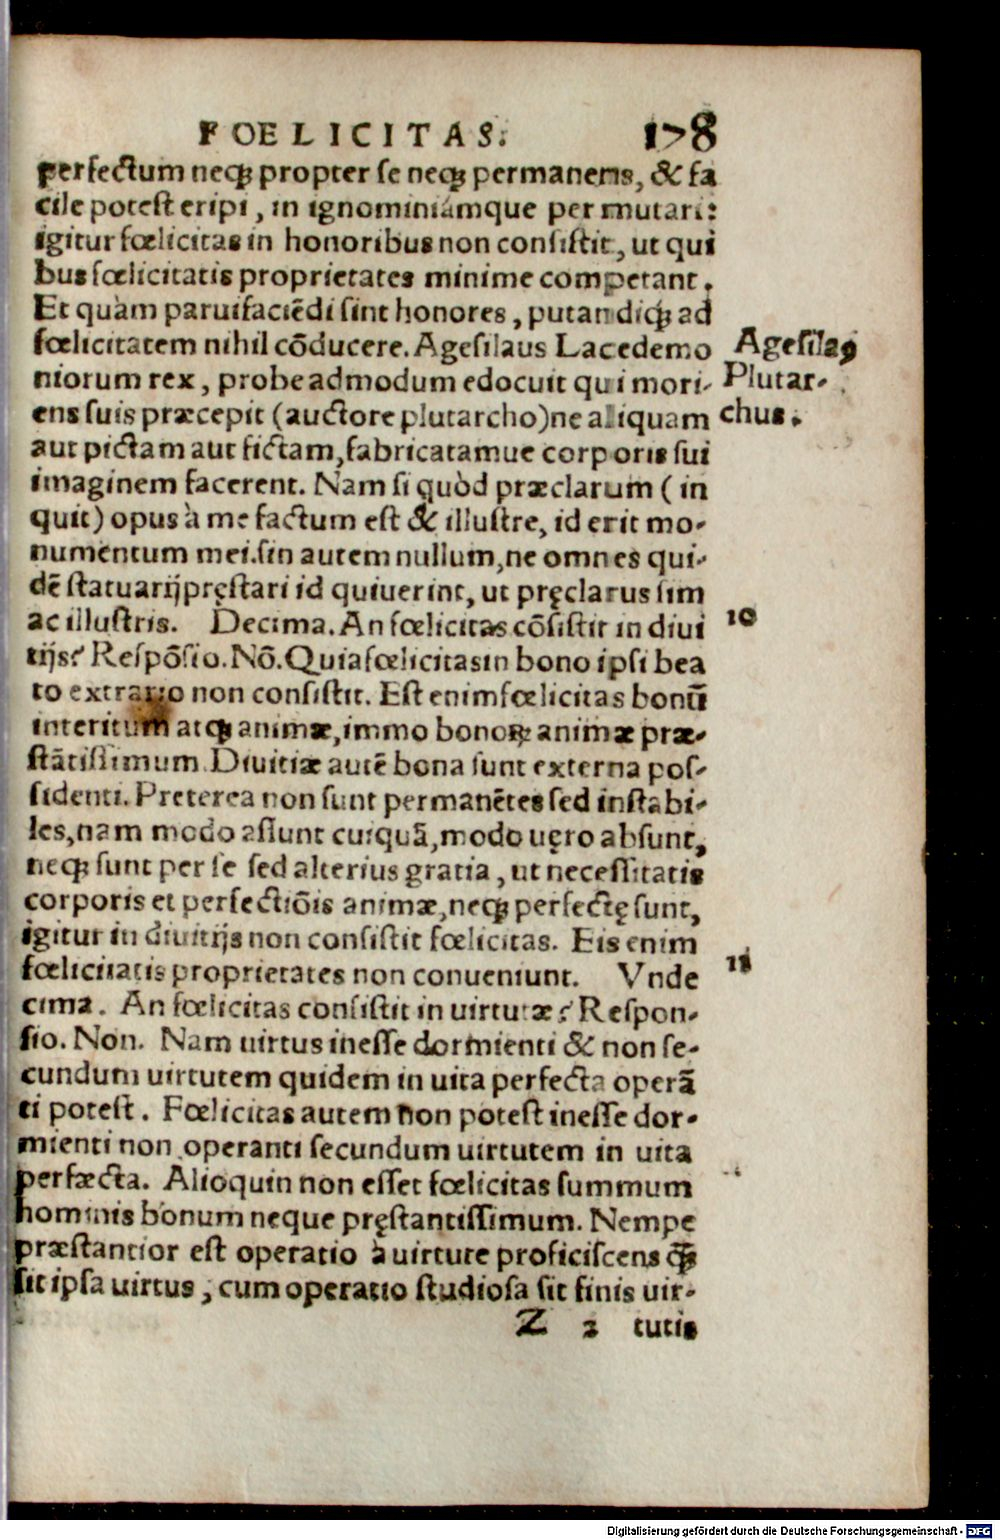 FOELICITAS. 178
perfectum neqꝫ propter se neqꝫ permanens, & fa
cile potest eripi, in ignominiámque permutari:
igitur fœlicitas in honoribus non consistit, ut qui
bus fœlicitatis proprietates minime competant.
Et quàm paruifaciẽdi sint honores, putandiqꝫ ad
fœlicitatem nihil cõducere. Agesilaus Lacedemo
niorum rex, probe admodum edocuit qui mori-
ens suis præcepit (auctore plutarcho) ne aliquam
aut pictam aut fictam, fabricatamue corporis sui
imaginem facerent. Nam si quòd præclarum (in
quit) opus à me factum est & illustre, id erit mo-
numentum mei. sin autem nullum, ne omnes qui-
dẽ statuarij pręstari id quiuerint, ut pręclarus sim
ac illustris. Decima. An fœlicitas cõsistit in diui
tijs? Respõsio. Nõ. Quia fœlicitas in bono ipsi bea
to extrario non consistit. Est enim fœlicitas bonũ
interitum atqꝫ animæ, immo bonoꝝ animæ præ-
stãtissimum. Diuitiæ autẽ bona sunt externa pos-
sidenti. Preterea non sunt permanẽtes sed instabi-
les, nam modo assunt cuiquã, modo uęro absunt,
neqꝫ sunt per se sed alterius gratia, ut necessitatis
corporis et perfectiõis animæ, neqꝫ perfectę sunt,
igitur in diuitijs non consistit fœlicitas. Eis enim
fœlicitatis proprietates non conueniunt. Vnde
cima. An fœlicitas consistit in uirtutæ? Respon-
sio. Non. Nam uirtus inesse dormienti & non se-
cundum uirtutem quidem in uita perfecta operã
ti potest. Fœlicitas autem non potest inesse dor-
mienti non operanti secundum uirtutem in uita
perfæcta. Alioquin non esset fœlicitas summum
hominis bonum neque pręstantissimum. Nempe
præstantior est operatio à uirtute proficiscens ꝗ̃ꝫ
sit ipsa uirtus, cum operatio studiosa sit finis uir-
Z 2 tutis
Agesilaꝰ
Plutar-
chus.
10
11
Digitalisierung gefördert durch die Deutsche Forschungsgemeinschaft - DFG